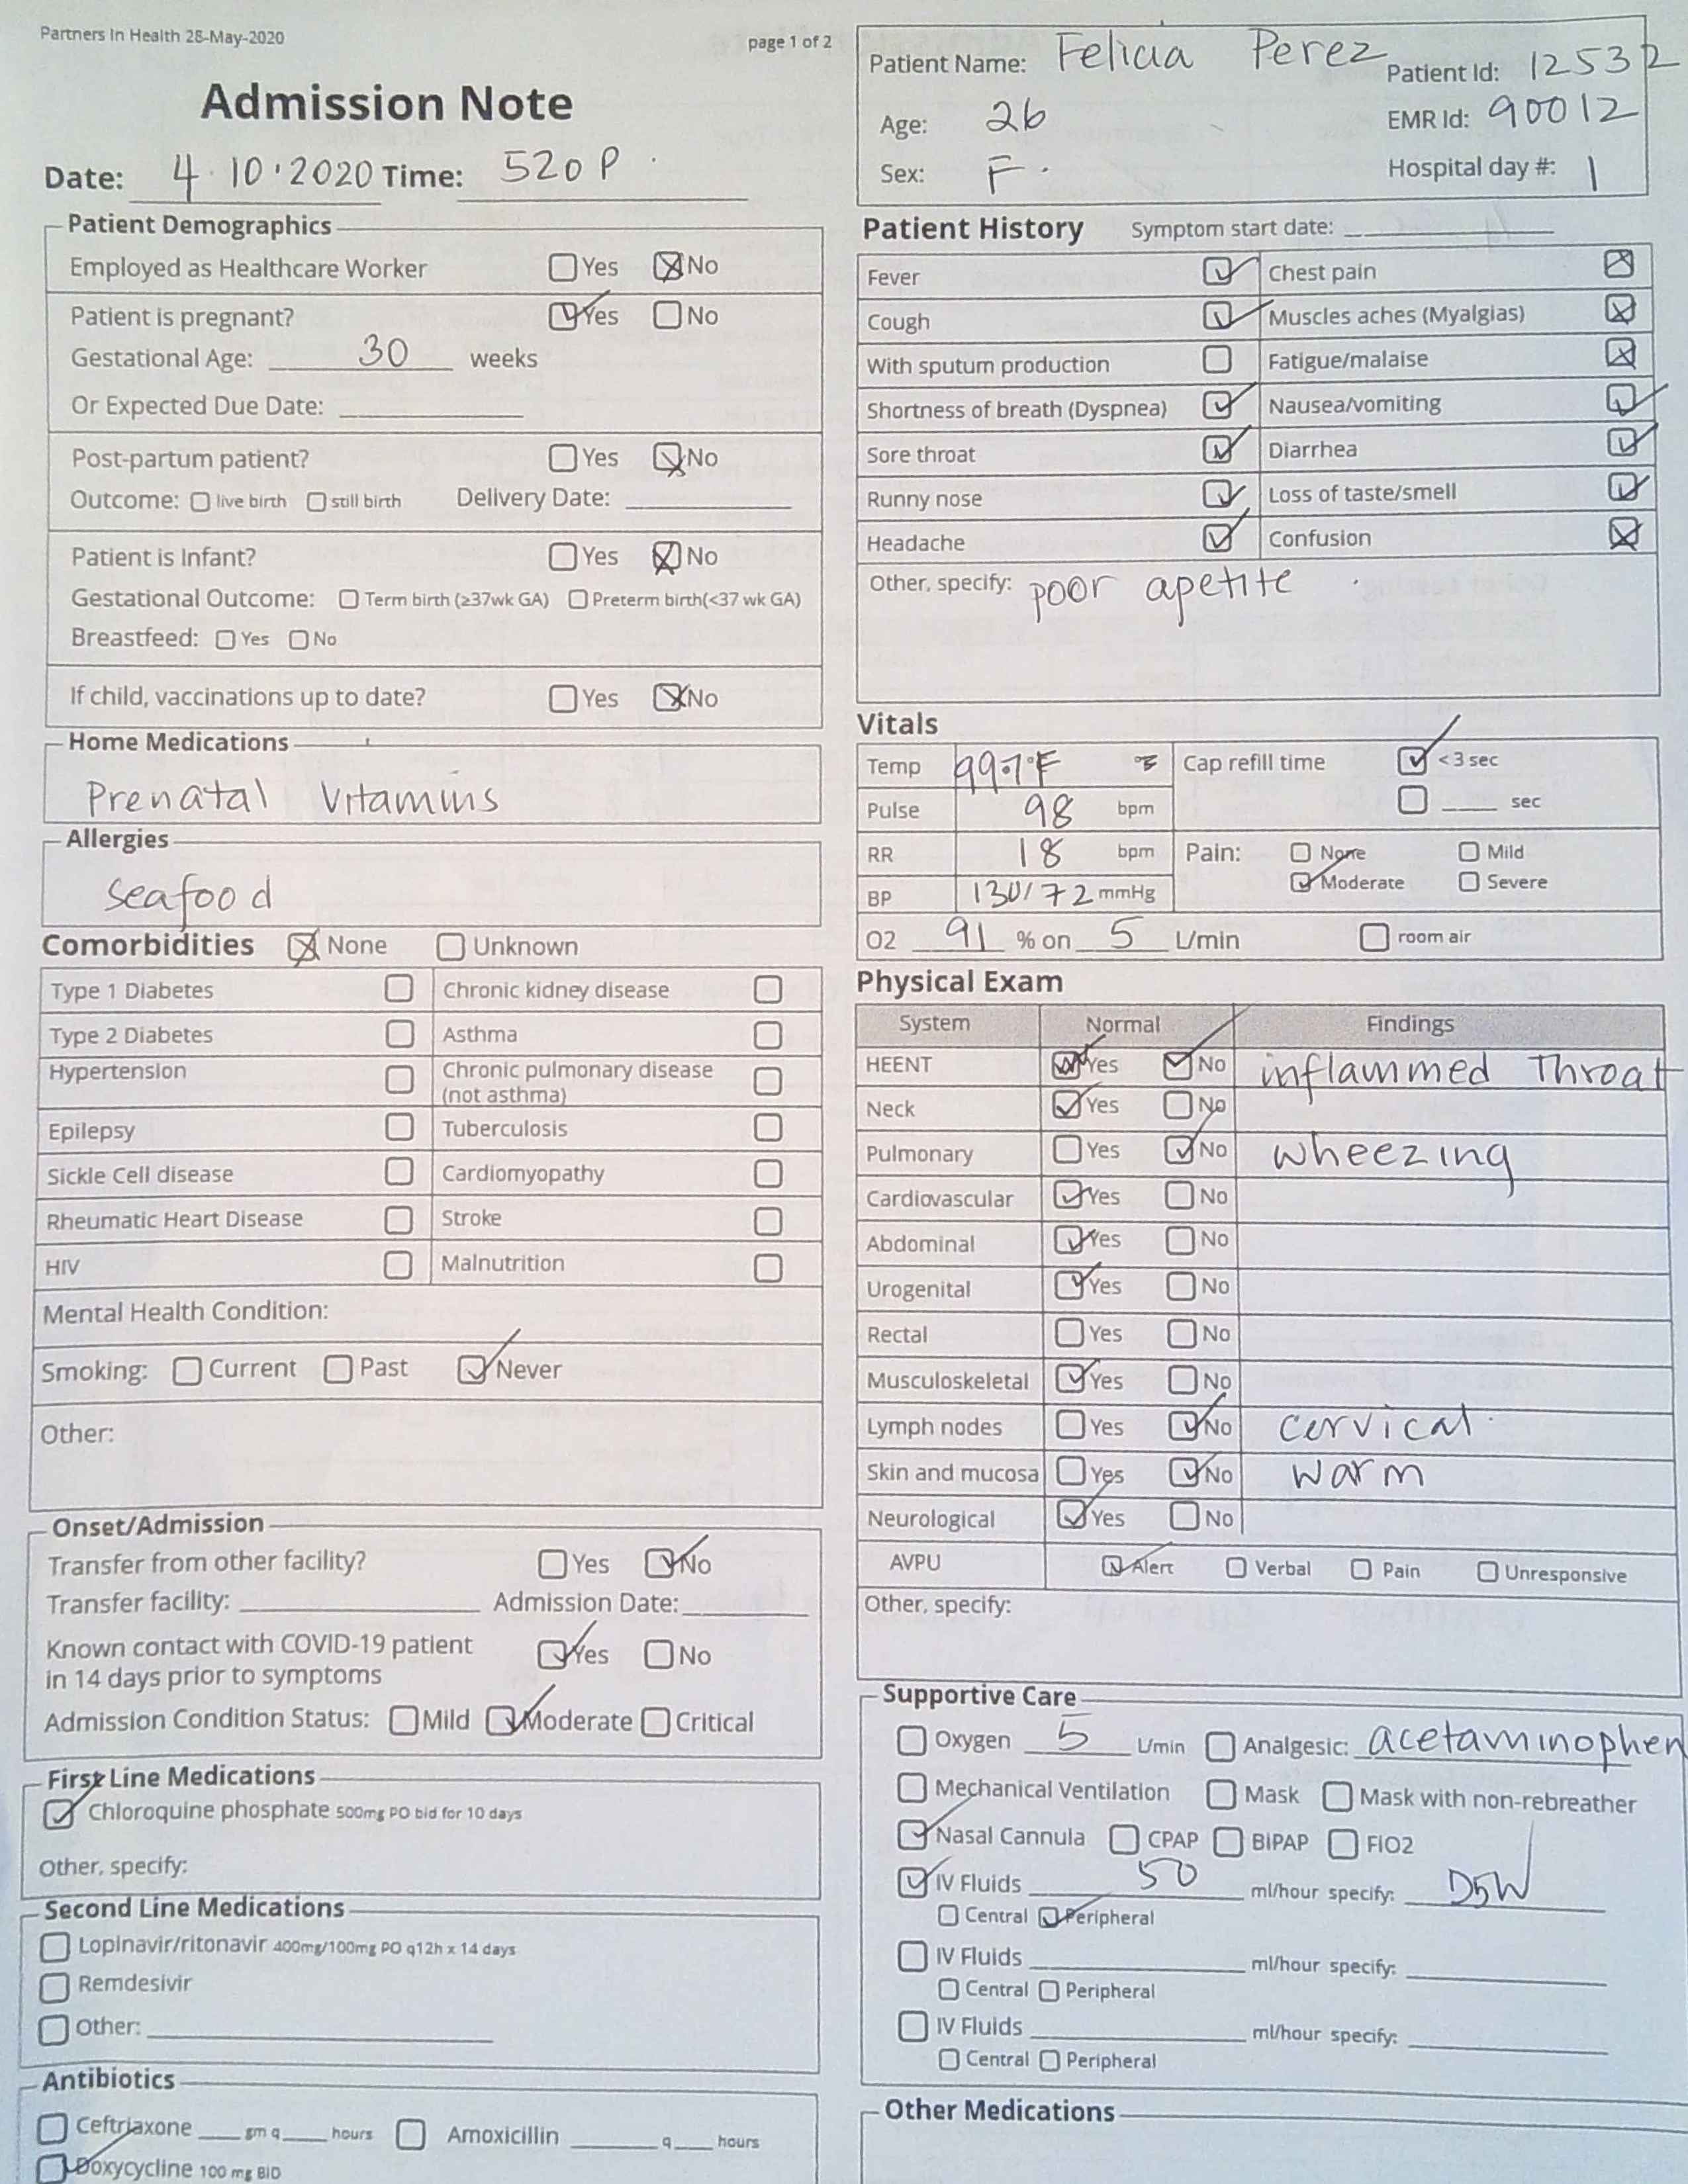 Partners In Health 28-May-2020
page 1 of 2
Admission Note
Date: 4.10.2020 Time: 520 P.
Patient Name: Felicia Perez
Patient Id: 12532
Age: 26
EMR Id: 90012
Sex: F.
Hospital day #: 1
Patient Demographics
Employed as Healthcare Worker Yes No
Patient is pregnant? Yes No
Gestational Age: 30 weeks
Or Expected Due Date:
Post-partum patient? Yes No
Outcome: live birth still birth Delivery Date:
Patient is Infant? Yes No
Gestational Outcome: Term birth (≥37wk GA) Preterm birth(<37 wk GA)
Breastfeed: Yes No
If child, vaccinations up to date? Yes No
Home Medications
Prenatal Vitamins
Allergies
Seafood
Comorbidities None Unknown
Type 1 Diabetes Chronic kidney disease
Type 2 Diabetes Asthma
Hypertension Chronic pulmonary disease
(not asthma)
Epilepsy Tuberculosis
Sickle Cell disease Cardiomyopathy
Rheumatic Heart Disease Stroke
HIV Malnutrition
Mental Health Condition:
Smoking: Current Past Never
Other:
Onset/Admission
Transfer from other facility? Yes No
Transfer facility: Admission Date:
Known contact with COVID-19 patient Yes No
in 14 days prior to symptoms
Admission Condition Status: Mild Moderate Critical
First Line Medications
Chloroquine phosphate 500mg PO bid for 10 days
Other, specify:
Second Line Medications
Lopinavir/ritonavir 400mg/100mg PO q12h x 14 days
Remdesivir
Other:
Antibiotics
Ceftriaxone gm q hours Amoxicillin q hours
Doxycycline 100 mg BID
Patient History Symptom start date:
Fever Chest pain
Cough Muscles aches (Myalgias)
With sputum production Fatigue/malaise
Shortness of breath (Dyspnea) Nausea/vomiting
Sore throat Diarrhea
Runny nose Loss of taste/smell
Headache Confusion
Other, specify: poor apetite
Vitals
Temp Cap refill time < 3 sec
Pulse 98 bpm sec
RR 18 bpm Pain: None Mild
Moderate Severe
BP 130/72 mmHg
O2 91 % on 5 L/min room air
Physical Exam
System Normal Findings
HEENT Yes No inflammed Throat
Neck Yes No
Pulmonary Yes No wheezing
Cardiovascular Yes No
Abdominal Yes No
Urogenital Yes No
Rectal Yes No
Musculoskeletal Yes No
Lymph nodes Yes No cervical
Skin and mucosa Yes No warm
Neurological Yes No
AVPU Alert Verbal Pain Unresponsive
Other, specify:
Supportive Care
Oxygen 5 L/min Analgesic: acetaminophen
Mechanical Ventilation Mask Mask with non-rebreather
Nasal Cannula CPAP BiPAP FiO2
IV Fluids 50 ml/hour specify: D5W
Central Peripheral
IV Fluids ml/hour specify:
Central Peripheral
IV Fluids ml/hour specify:
Central Peripheral
Other Medications